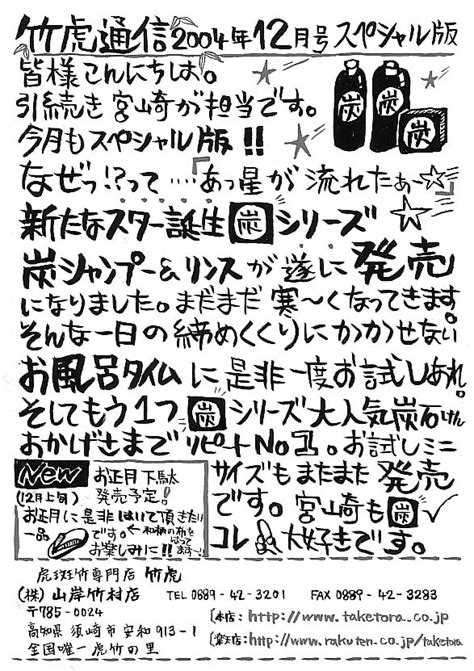 竹虎通信2004年12月号スペシャル版
皆様こんにちは。
引続き宮崎が担当です。
今月もスペシャル版!!
なぜっ!?って…「あっ星が流れたぁー☆」
新たなスター誕生炭シリーズ
炭シャンプー&リンスが遂に発売
になりました。まだまだ寒〜くなってきます。
そんな一日の締めくくりにかかせない
お風呂タイムに是非一度お試しあれ。
そしてもう1つ炭シリーズ大人気炭石けん
おかげさまでリピートNo1。お試しミニ
サイズもまたまた発売
です。宮崎も炭✓
コレ大好きです。
New お正月下駄
(12月上旬) 発売予定!
お正月に是非はいて頂きたい
一品です。←和柄の布を
はって
ます〜!
お楽しみに!!
虎斑竹専門店 竹虎
(株)山岸竹材店 TEL 0889-42-3201 FAX 0889-42-3283
〒785-0024 〔本店:http://www.taketora.co.jp
高知県須崎市安和913-1 〔楽天店:http://www.rakuten.co.jp/taketora
全国唯一虎竹の里